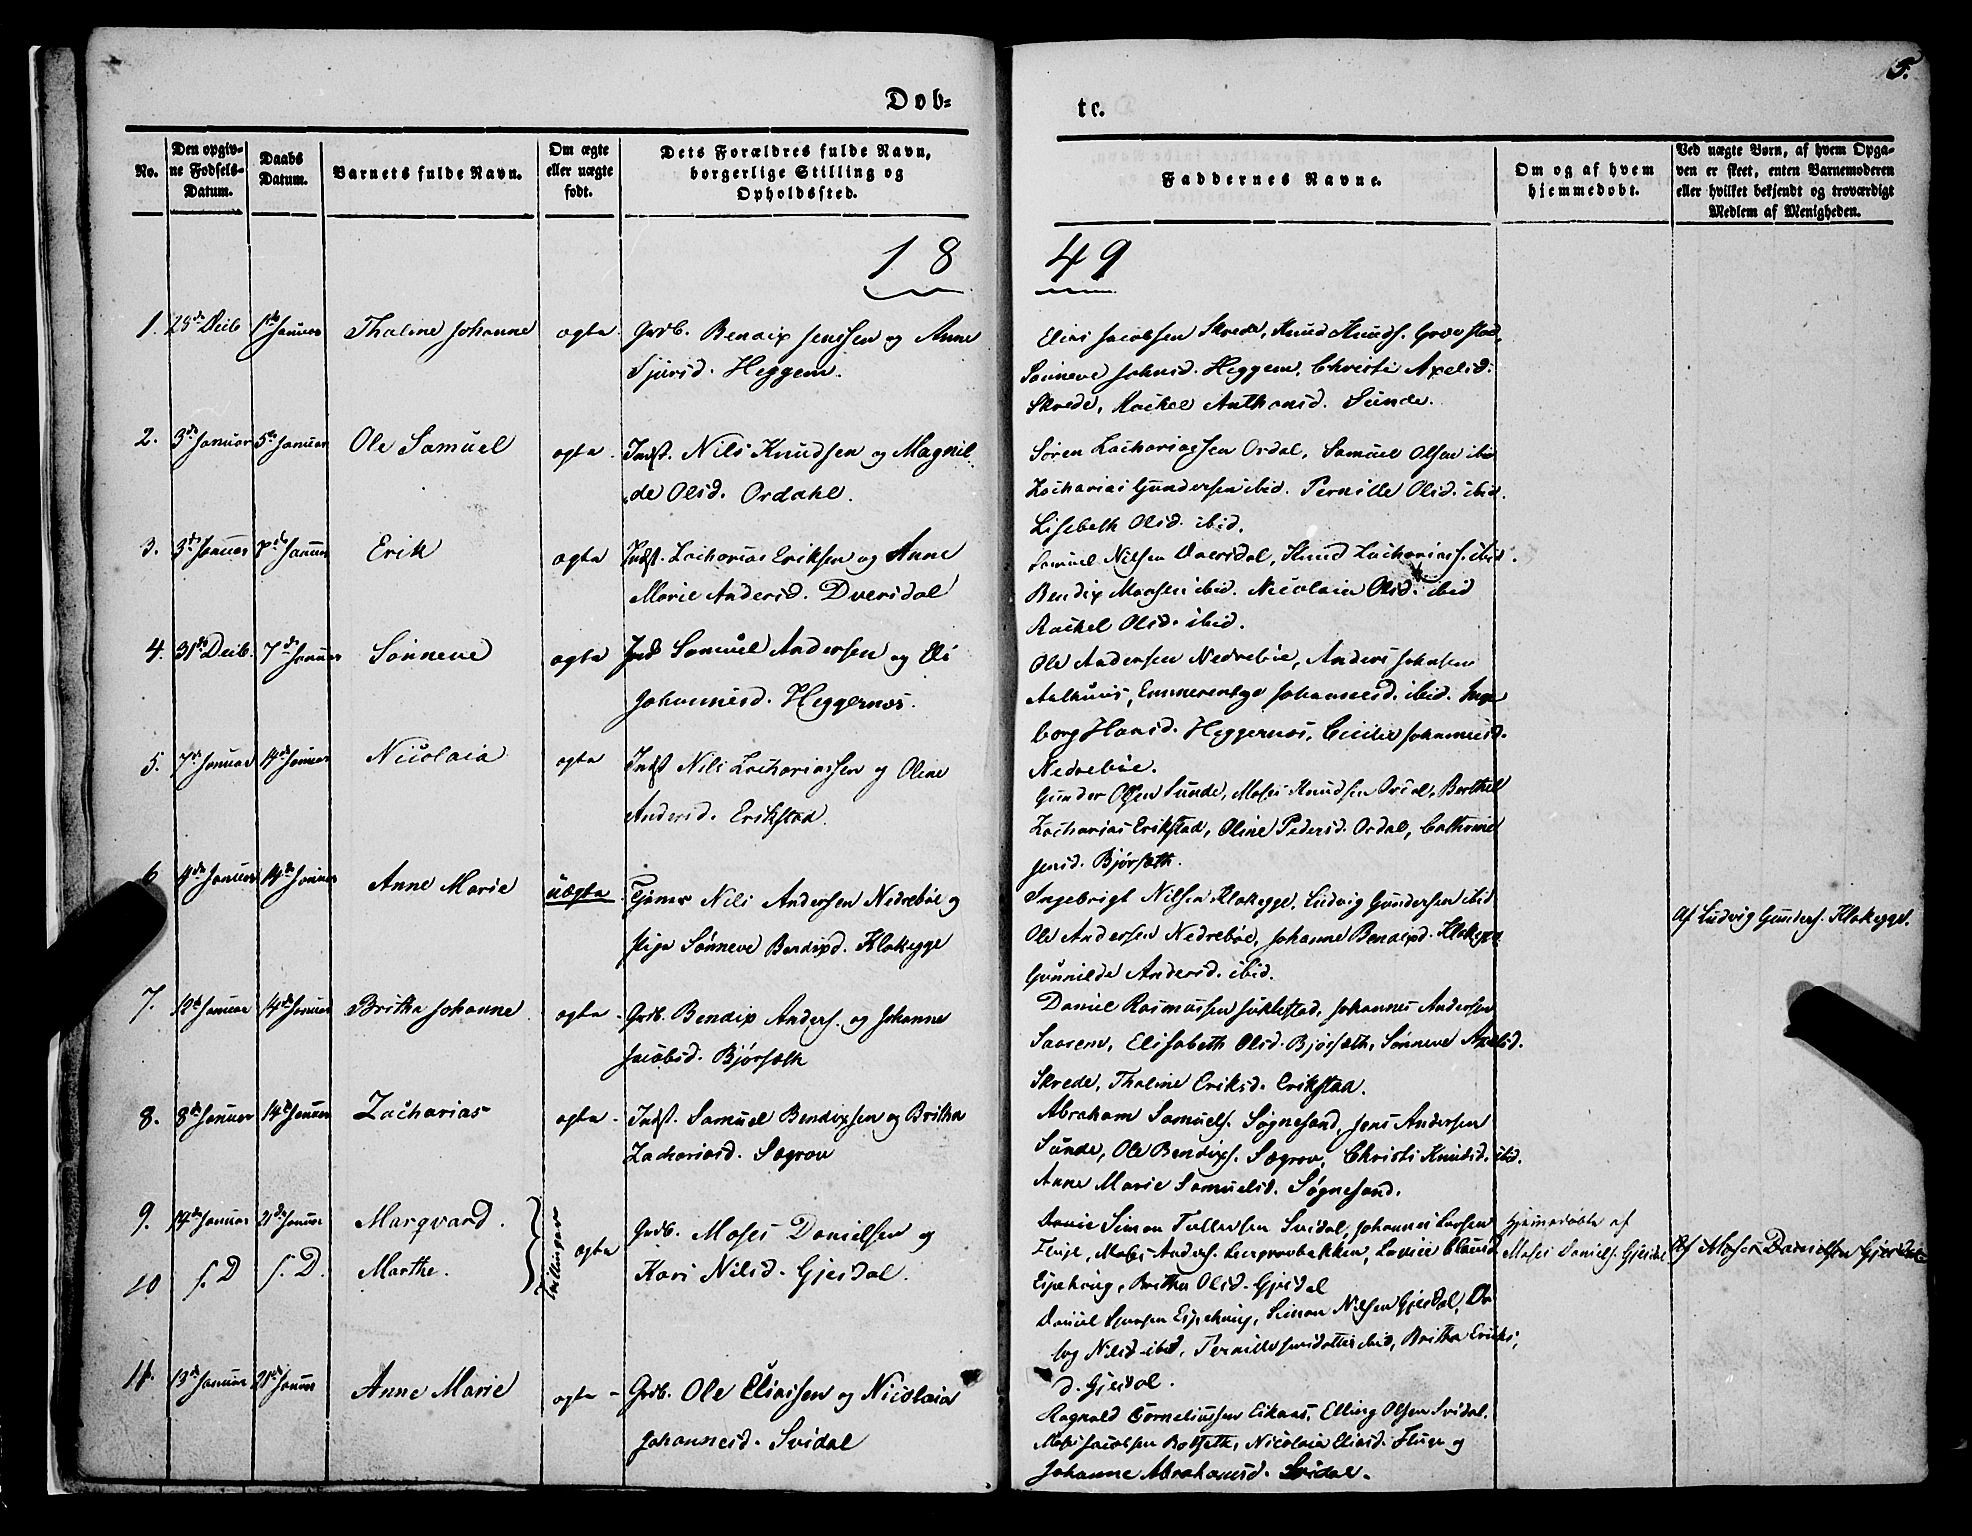 5.
Døb=
te.
No.
Den opgiv-
ne Fødsels-
Datum.
Daabs
Datum.
Barnets fulde Navn.
Om ægte
eller uægte
født.
Dets Forældres fulde Navn,
borgerlige Stilling og
Opholdssted.
Faddernes Navne.
Om og af hvem
hjemmedøbt.
Ved uægte Børn, af hvem Opga-
ven er skeet, enten Barnemoderen
eller hvilket bekjendt og troværdigt
Medlem af Menigheden.
18 49
1. 1ste Januar Thaline Johanne ægte Grdb. Bendix Jensen og Anne
Sjursd. Heggem.
Elias Jacobsen Skrede, Knud Knuds.
Sønneve Johnsd. Heggem, Christi Axelsd.
Skrede, Rachel Anthonsd. Sunde.
2. 3de Januar 5te Januar Ole Samuel ægte Indst. Nils Knudsen og Magnil
de Olsd. Ordahl.
Søren Zachariassen Ordal, Samuel Olsen ibid
Zacharias Gundersen ibid. Pernille Olsd. ibid.
Lisebeth Olsd. ibid.
3. 3de Januar 7de Januar Erik ægte Indst. Zacharias Eriksen og Anne
Marie Andersd. Dversdal
Samuel Nilsen Dversdal, Knud Zacharias. ibid.
Bendix Monsen ibid. Nicolaia Olsd. ibid
Rachel Olsd. ibid.
4. 31te Decb. 7de Januar Sønneve ægte Ind Samuel Andersen og Eli
Johannesd. Heggernes.
Ole Andersen Nedrebøe, Anders Johnsen
Aalhuus, Emmerentze Johannesd. ibid. Inge
borg Hansd. Heggernes, Cicilie Johannesd.
Nedrebøe.
5. 7de Januar 14de Januar Nicolaia ægte Indst Nils Zachariassen og Oline
Andersd. Erikstad.
Gunder Olsen Sunde, Moses Knudsen Ordal, Berthel
Zacharias Erikstad, Oline Pedersd. Ordal, Cathrine
Jensd. Bjørsæth.
6 4de Januar 14de Januar Anne Marie uægte Tjener Nils Andersen Nedrebøe og
Pige Sønneve Bendixd. Klakegge
Ingebrigt Nilsen Klakegge, Ludvig Gundersen ibid
Ole Andersen Nedrebøe, Johanne Bendixd. Klakegge
Gunnilde Andersd. ibid.
Af Ludvig Gunders. Klakegge.
7. 12te Januar 14de Januar Britha Johanne ægte Grdb. Bendix Anders. og Johanne
Jacobsd. Bjørsæth
Daniel Rasmussen, Johannes Andersen
Elisabeth Olsd. Bjørsæth, Sønneve Axelsd.
Skrede, Thaline Eriksd. Erikstad.
8. 8de Januar 14de Januar Zacharias ægte Indst. Samuel Bendixsen og Britha
Zachariasd. Sægrov
Abraham Samuels. Søgnesand, Jens Andersen
Sunde, Ole Bendixs. Sægrov, Christi Knudsd. ibid.
Anne Marie Samuelsd. Søgnesand.
9. 14de Januar 21de Januar Marqvard.
10 s. D s. D. Marthe.
Tvillinger ægte Grdb. Moses Danielsen og
Kari Nilsd. Gjesdal.
Simon Tollevsen Svidal, Johannes Larsen
Fluge, Moses Anders.
Britha Olsd. Gjesdal
Daniel Simon Nilsen Gjesdal,
Nilsd. ibid, Pernille ibid, Britha Eriks,
d. Gjesdal.
Hjemmedøbte af
Moses Daniels. Gjesdal
Af Moses Danielsen Gjesdal
11. 13de Januar 21de Januar Anne Marie ægte Grdb. Ole Eliassen og Nicolaia
Johannesd. Svidal
Ragnald Corneliussen Eikaas, Elling Olsen Svidal.
Moses Jacobsen Botseth, Nicolaia Eliasd. Fluge og
Johanne Abrahamsd. Svidal.